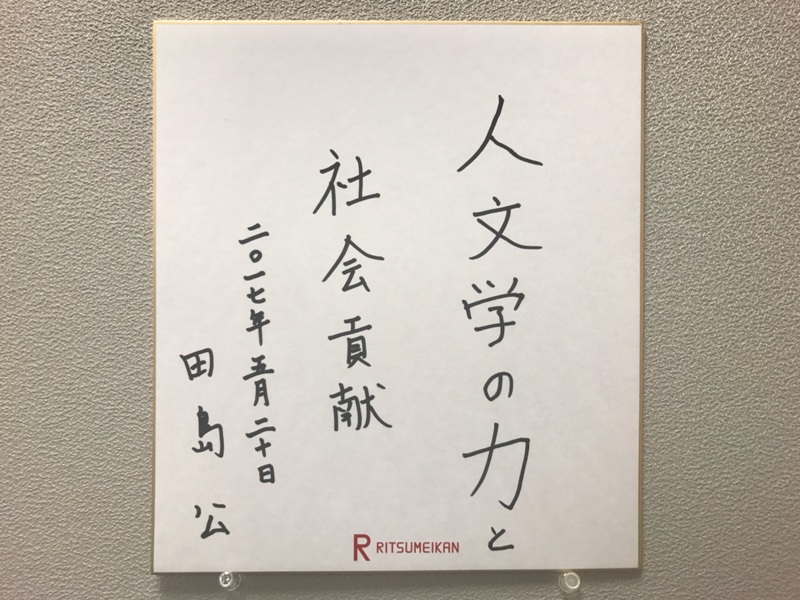 人文学の力と
社会貢献
二〇一七年五月二十日
田島公
RITSUMEIKAN